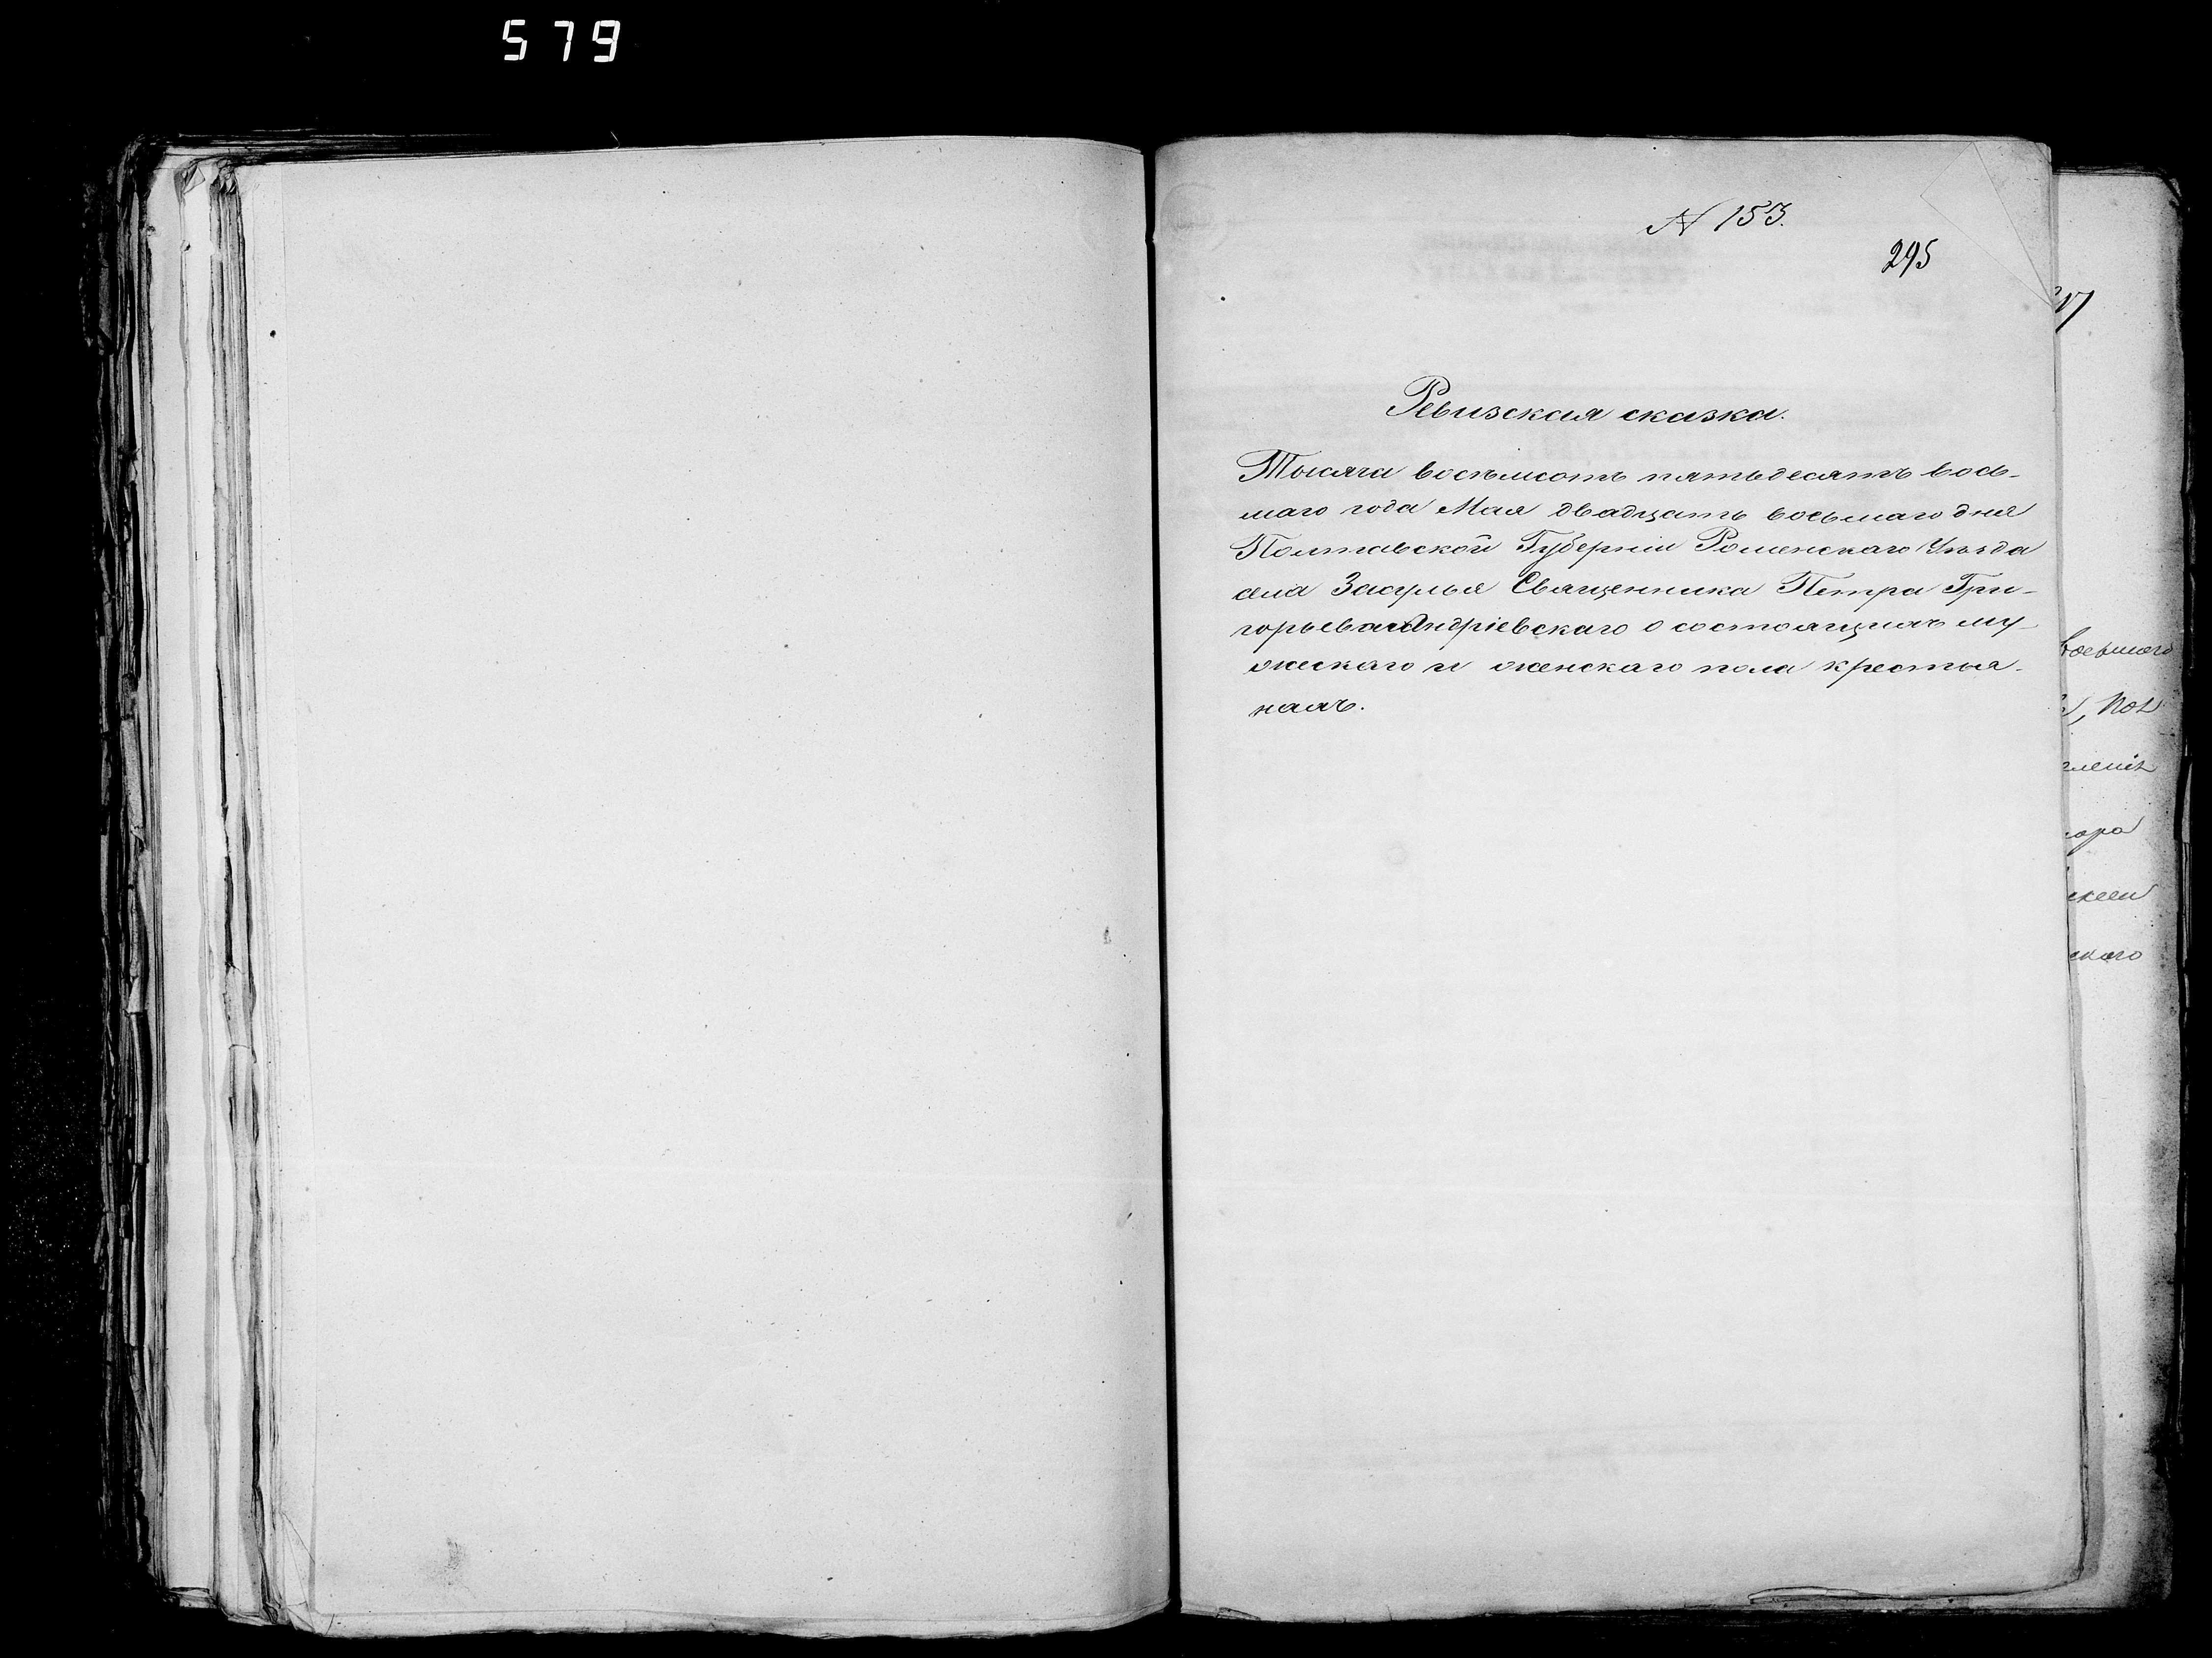 579
N 153.
295
Ревизская сказка.
Тысяча восемьсотъ пятьдесятъ вось-
маго года Мая двадцать восьмаго дня
Полтавской Губерніи Роменскаго Уѣзда
села Засулья Священника Петра Гри-
горьева Андріевскаго о состоящихъ му-
жескаго и женскаго пола крестья-
нахъ.
восьмаго